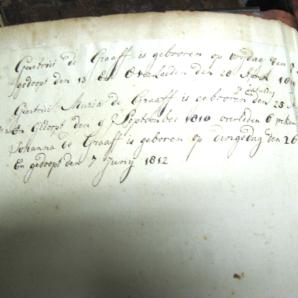 Geertrui de Graaff is geboren op vrydag den
Gedoopt den 13 en Overleiden den 28 April
Geertrui Maria de Graaff is geboren den 28
en Gedoopt den 9 September 1810 overliden 6 weken
Johanna de Graaff is geboren op dingsdag den 26
En gedoopt den 7 Juny 1812